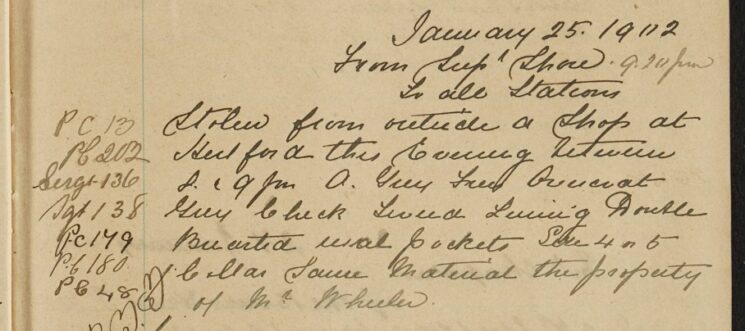 January 25. 1902
From Supt Shore. 9.20 pm
To all Stations
P.C 13
Stolen from outside a Shop at
PC 202
Hertford this Evening between
Sergt 136
8. & 9 pm A. Grey Overcoat
Sgt 138
Grey Check Lining Double
P.C 179
Breasted usual Pockets Size 4 or 5
P.C 180
Collar Same Material the property
PC 48
of Mr Wheeler.